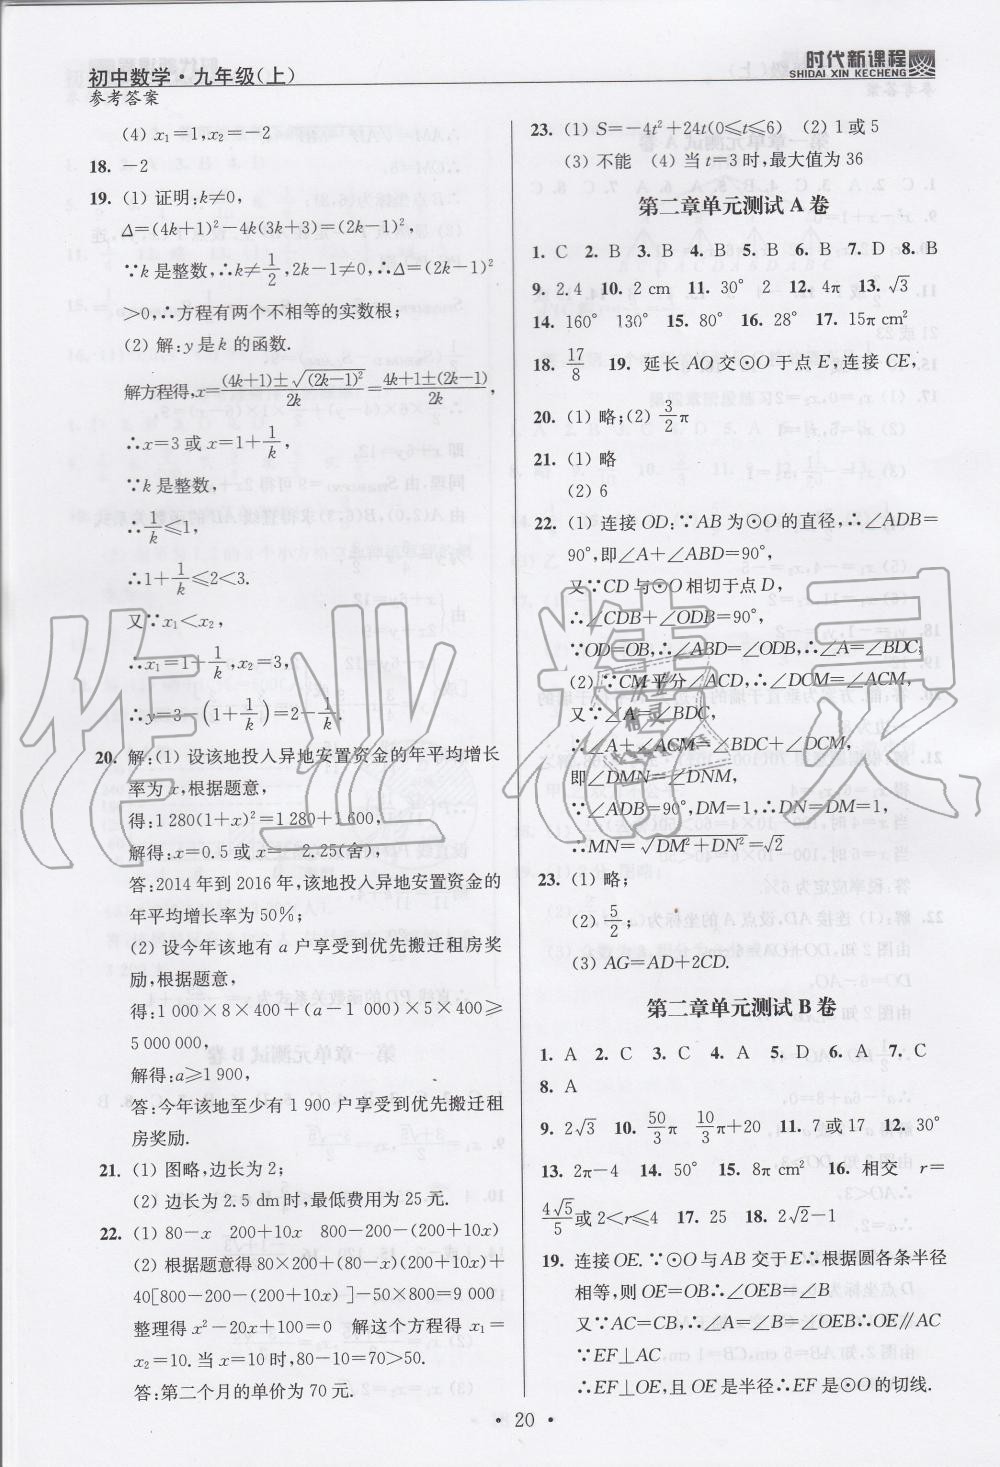 初中数学·九年级(上)
参考答案
时代新课程
SHIDAI XIN KECHENG
(4) x₁=1,x₂=-2
18. -2
19. (1) 证明:k≠0,
Δ=(4k+1)²-4k(3k+3)=(2k-1)²,
∵k是整数,∴k≠1/2,2k-1≠0,∴Δ=(2k-1)²
>0,∴方程有两个不相等的实数根;
(2) 解:y是k的函数.
解方程得,x=(4k+1)±√(2k-1)²/2k=4k+1±(2k-1)/2k,
∴x=3或x=1+1/k,
∵k是整数,
∴1/k≤1,
∴1+1/k≤2<3.
又∵x₁<x₂,
∴x₁=1+1/k,x₂=3,
∴y=3-(1+1/k)=2-1/k.
20. 解:(1) 设该地投入异地安置资金的年平均增长
率为x,根据题意,
得:1 280(1+x)²=1 280+1 600,
解得:x=0.5或x=-2.25(舍),
答:2014年到2016年,该地投入异地安置资金的
年平均增长率为50%;
(2) 设今年该地有a户享受到优先搬迁租房奖
励,根据题意,
得:1 000×8×400+(a-1 000)×5×400≥
5 000 000,
解得:a≥1 900,
答:今年该地至少有1 900户享受到优先搬迁租
房奖励.
21. (1) 图略,边长为2;
(2) 边长为2.5 dm时,最低费用为25元.
22. (1) 80-x 200+10x 800-200-(200+10x)
(2) 根据题意得80×200+(80-x)(200+10x)+
40[800-200-(200+10x)]-50×800=9 000
整理得x²-20x+100=0 解这个方程得x₁=
x₂=10.当x=10时,80-10=70>50.
答:第二个月的单价为70元.
23. (1) S=-4t²+24t(0≤t≤6) (2) 1或5
(3) 不能 (4) 当t=3时,最大值为36
第二章单元测试A卷
1. C 2. B 3. B 4. B 5. B 6. B 7. D 8. B
9. 2.4 10. 2 cm 11. 30° 2 12. 4π 13. √3
14. 160° 130° 15. 80° 16. 28° 17. 15π cm²
18. 17/8 19. 延长AO交⊙O于点E,连接CE,
20. (1) 略;(2) 3/2π
21. (1) 略
(2) 6
22. (1) 连接OD;∵AB为⊙O的直径,∴∠ADB=
90°,即∠A+∠ABD=90°,
又∵CD与⊙O相切于点D,
∴∠CDB+∠ODB=90°,
∵OD=OB,∴∠ABD=∠ODB,∴∠A=∠BDC;
(2) ∵CM平分∠ACD,∴∠DCM=∠ACM,
又∵∠A=∠BDC,
∴∠A+∠ACM=∠BDC+∠DCM,
即∠DMN=∠DNM,
∵∠ADB=90°,DM=1,∴DN=DM=1,
∴MN=√DM²+DN²=√2
23. (1) 略;
(2) 5/2;
(3) AG=AD+2CD.
第二章单元测试B卷
1. A 2. C 3. C 4. A 5. D 6. A 7. C
8. A
9. 2√3 10. 50/3π 10/3π+20 11. 7或17 12. 30°
13. 2π-4 14. 50° 15. 8π cm² 16. 相交 r=
4√5/5或2<r≤4 17. 25 18. 2√2-1
19. 连接OE.∵⊙O与AB交于E∴根据圆各条半径
相等,则OE=OB∴∠OEB=∠B
又∵AC=CB,∴∠A=∠B=∠OEB∴OE∥AC
∵EF⊥AC
∴EF⊥OE,且OE是半径∴EF是⊙O的切线.
• 20 •
作业精灵